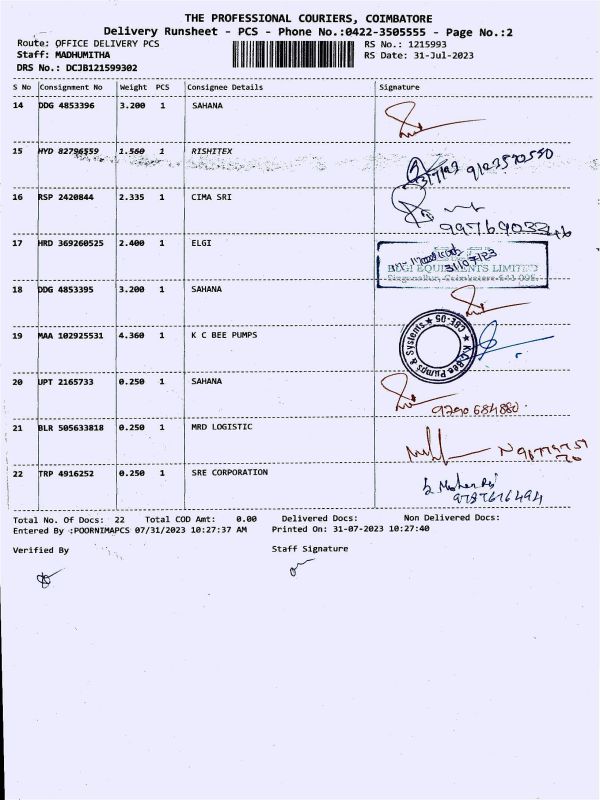 THE PROFESSIONAL COURIERS, COIMBATORE
Delivery Runsheet - PCS - Phone No.:0422-3505555 - Page No.:2
Route: OFFICE DELIVERY PCS RS No.: 1215993
Staff: MADHUMITHA RS Date: 31-Jul-2023
DRS No.: DCJB121599302
S No Consignment No Weight PCS Consignee Details Signature
14 DDG 4853396 3.200 1 SAHANA
15 HYD 82796559 1.560 1 RISHITEX
31/7/23 9123572550
16 RSP 2420844 2.335 1 CIMA SRI
17 HRD 369260525 2.400 1 ELGI
31/07/23
ELGI EQUIPMENTS LIMITED
Singanallur, Coimbatore-641 005.
18 DDG 4853395 3.200 1 SAHANA
19 MAA 102925531 4.360 1 K C BEE PUMPS
★ K.C.Bee Pumps & Systems ★ CBE-05
20 UPT 2165733 0.250 1 SAHANA
9290684880
21 BLR 505633818 0.250 1 MRD LOGISTIC
22 TRP 4916252 0.250 1 SRE CORPORATION
9787616494
Total No. Of Docs: 22 Total COD Amt: 0.00 Delivered Docs: Non Delivered Docs:
Entered By :POORNIMAPCS 07/31/2023 10:27:37 AM Printed On: 31-07-2023 10:27:40
Verified By Staff Signature